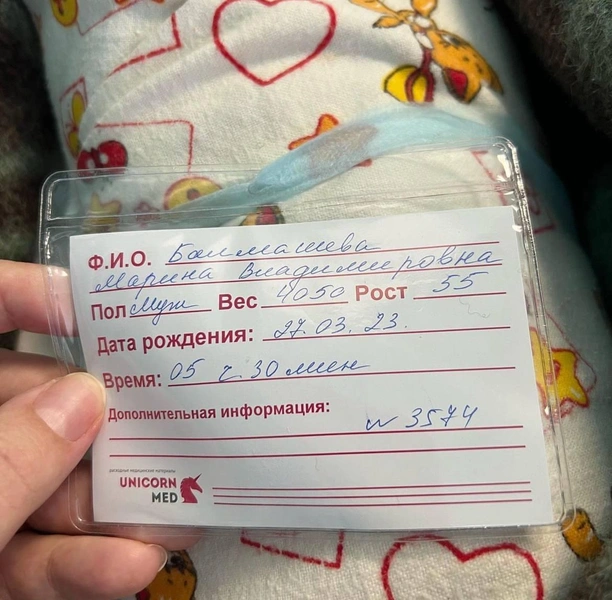 Ф.И.О. Балмашева
Марина Владимировна
Пол Муж Вес 4050 Рост 55
Дата рождения: 27.03.23.
Время: 05 ч. 30 мин
Дополнительная информация:
N 3574
расходные медицинские материалы
UNICORN
MED